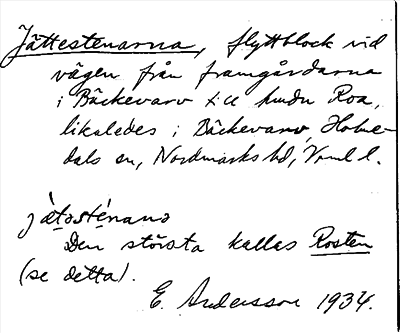 Jättestenarna, flyttblock vid
vägen från framgårdarna
i Bäckevarv till Roa,
likaledes i Bäckevarv, Holme-
dals sn, Nordmarks hd, Vrml l.
jä̀təsténanə
Den största kallas Rosten
(se detta).
E. Andersson 1934.